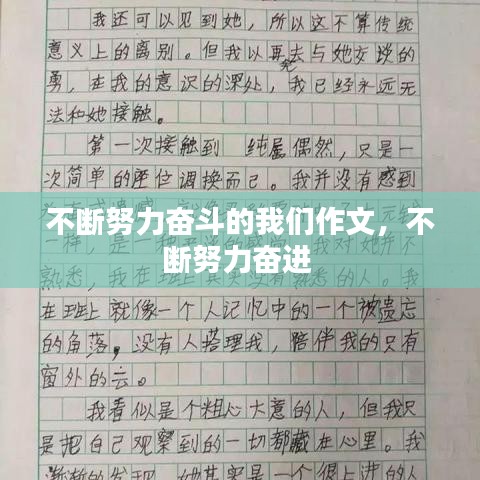 我还可以见到她,所以这不算传统
意义上的离别。但我以再去与她交谈的
究
勇,在我的意识的深处,我已经永远无
法和她接触。
第一次接触到 纯属偶然,只是一
次简单的座位调换而已。我并没有感到
不断努力奋斗的我们作文,不
断努力奋进
熟悉,我在班上
在班上就像一个人记忆中的一个被遗忘
的角落,没有人搭理我,陪伴我的只有
窗外的云。
我看似是个粗心大意的人,但我只
是把自己观察到的一切都藏在心里。我
渐渐的发现,她其实是一个很上进的人